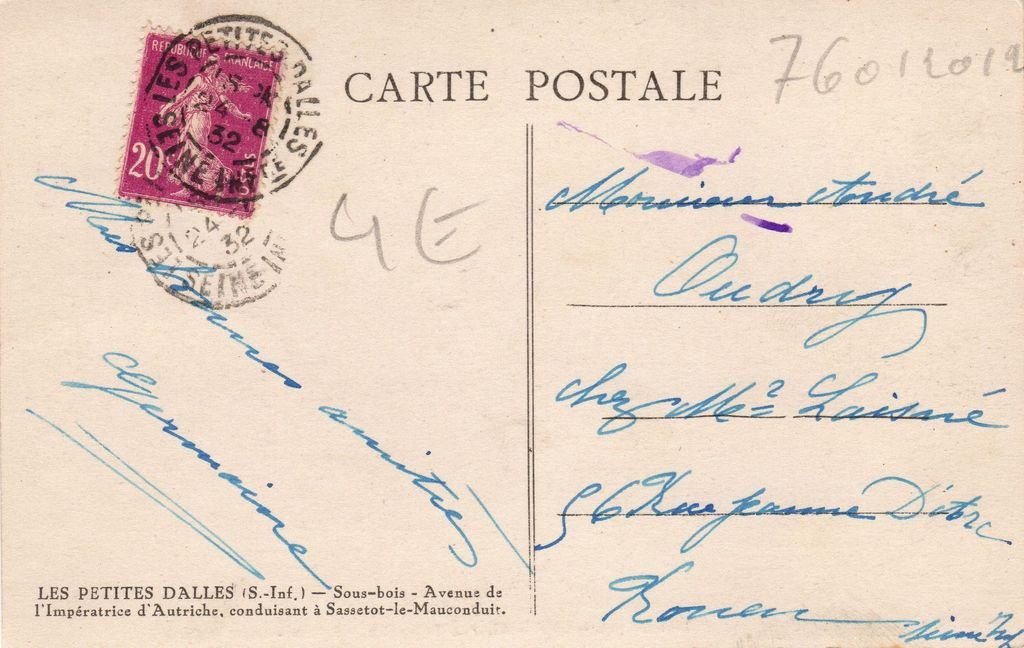 REPUBLIQUE FRANÇAISE
20c
LES PETITES DALLES
24 8
32
SEINE INFRE
24
32
SEINE IN
CARTE POSTALE
76012012
4E
Mes bonnes amitiés
Germaine
Monsieur André
Oudry
chez Mr Laisné
56 Rue Jeanne D'Arc
Rouen
Seine Inf
LES PETITES DALLES (S.-Inf.) — Sous-bois - Avenue de
l'Impératrice d'Autriche, conduisant à Sassetot-le-Mauconduit.